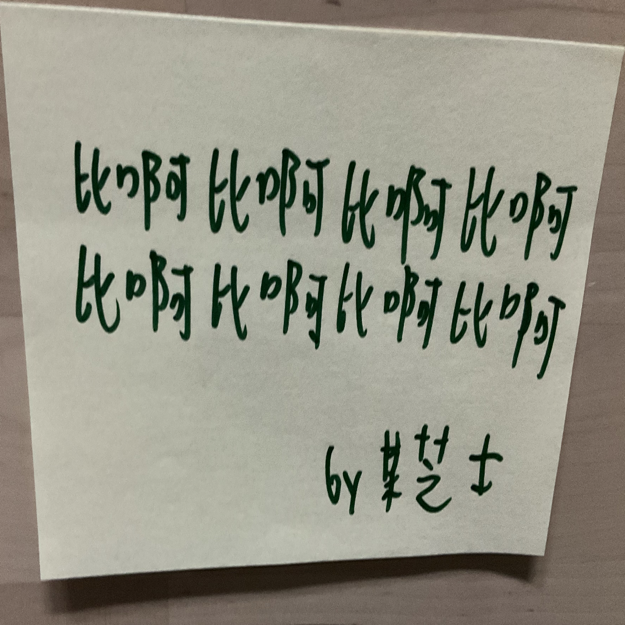 比啊比啊比啊比啊
比啊比啊比啊比啊
by 某芝士